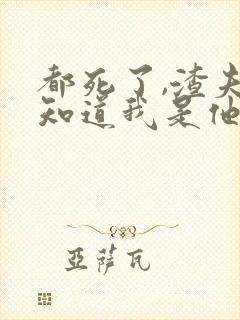 都死了,渣夫
知道我是他
亞薩瓦